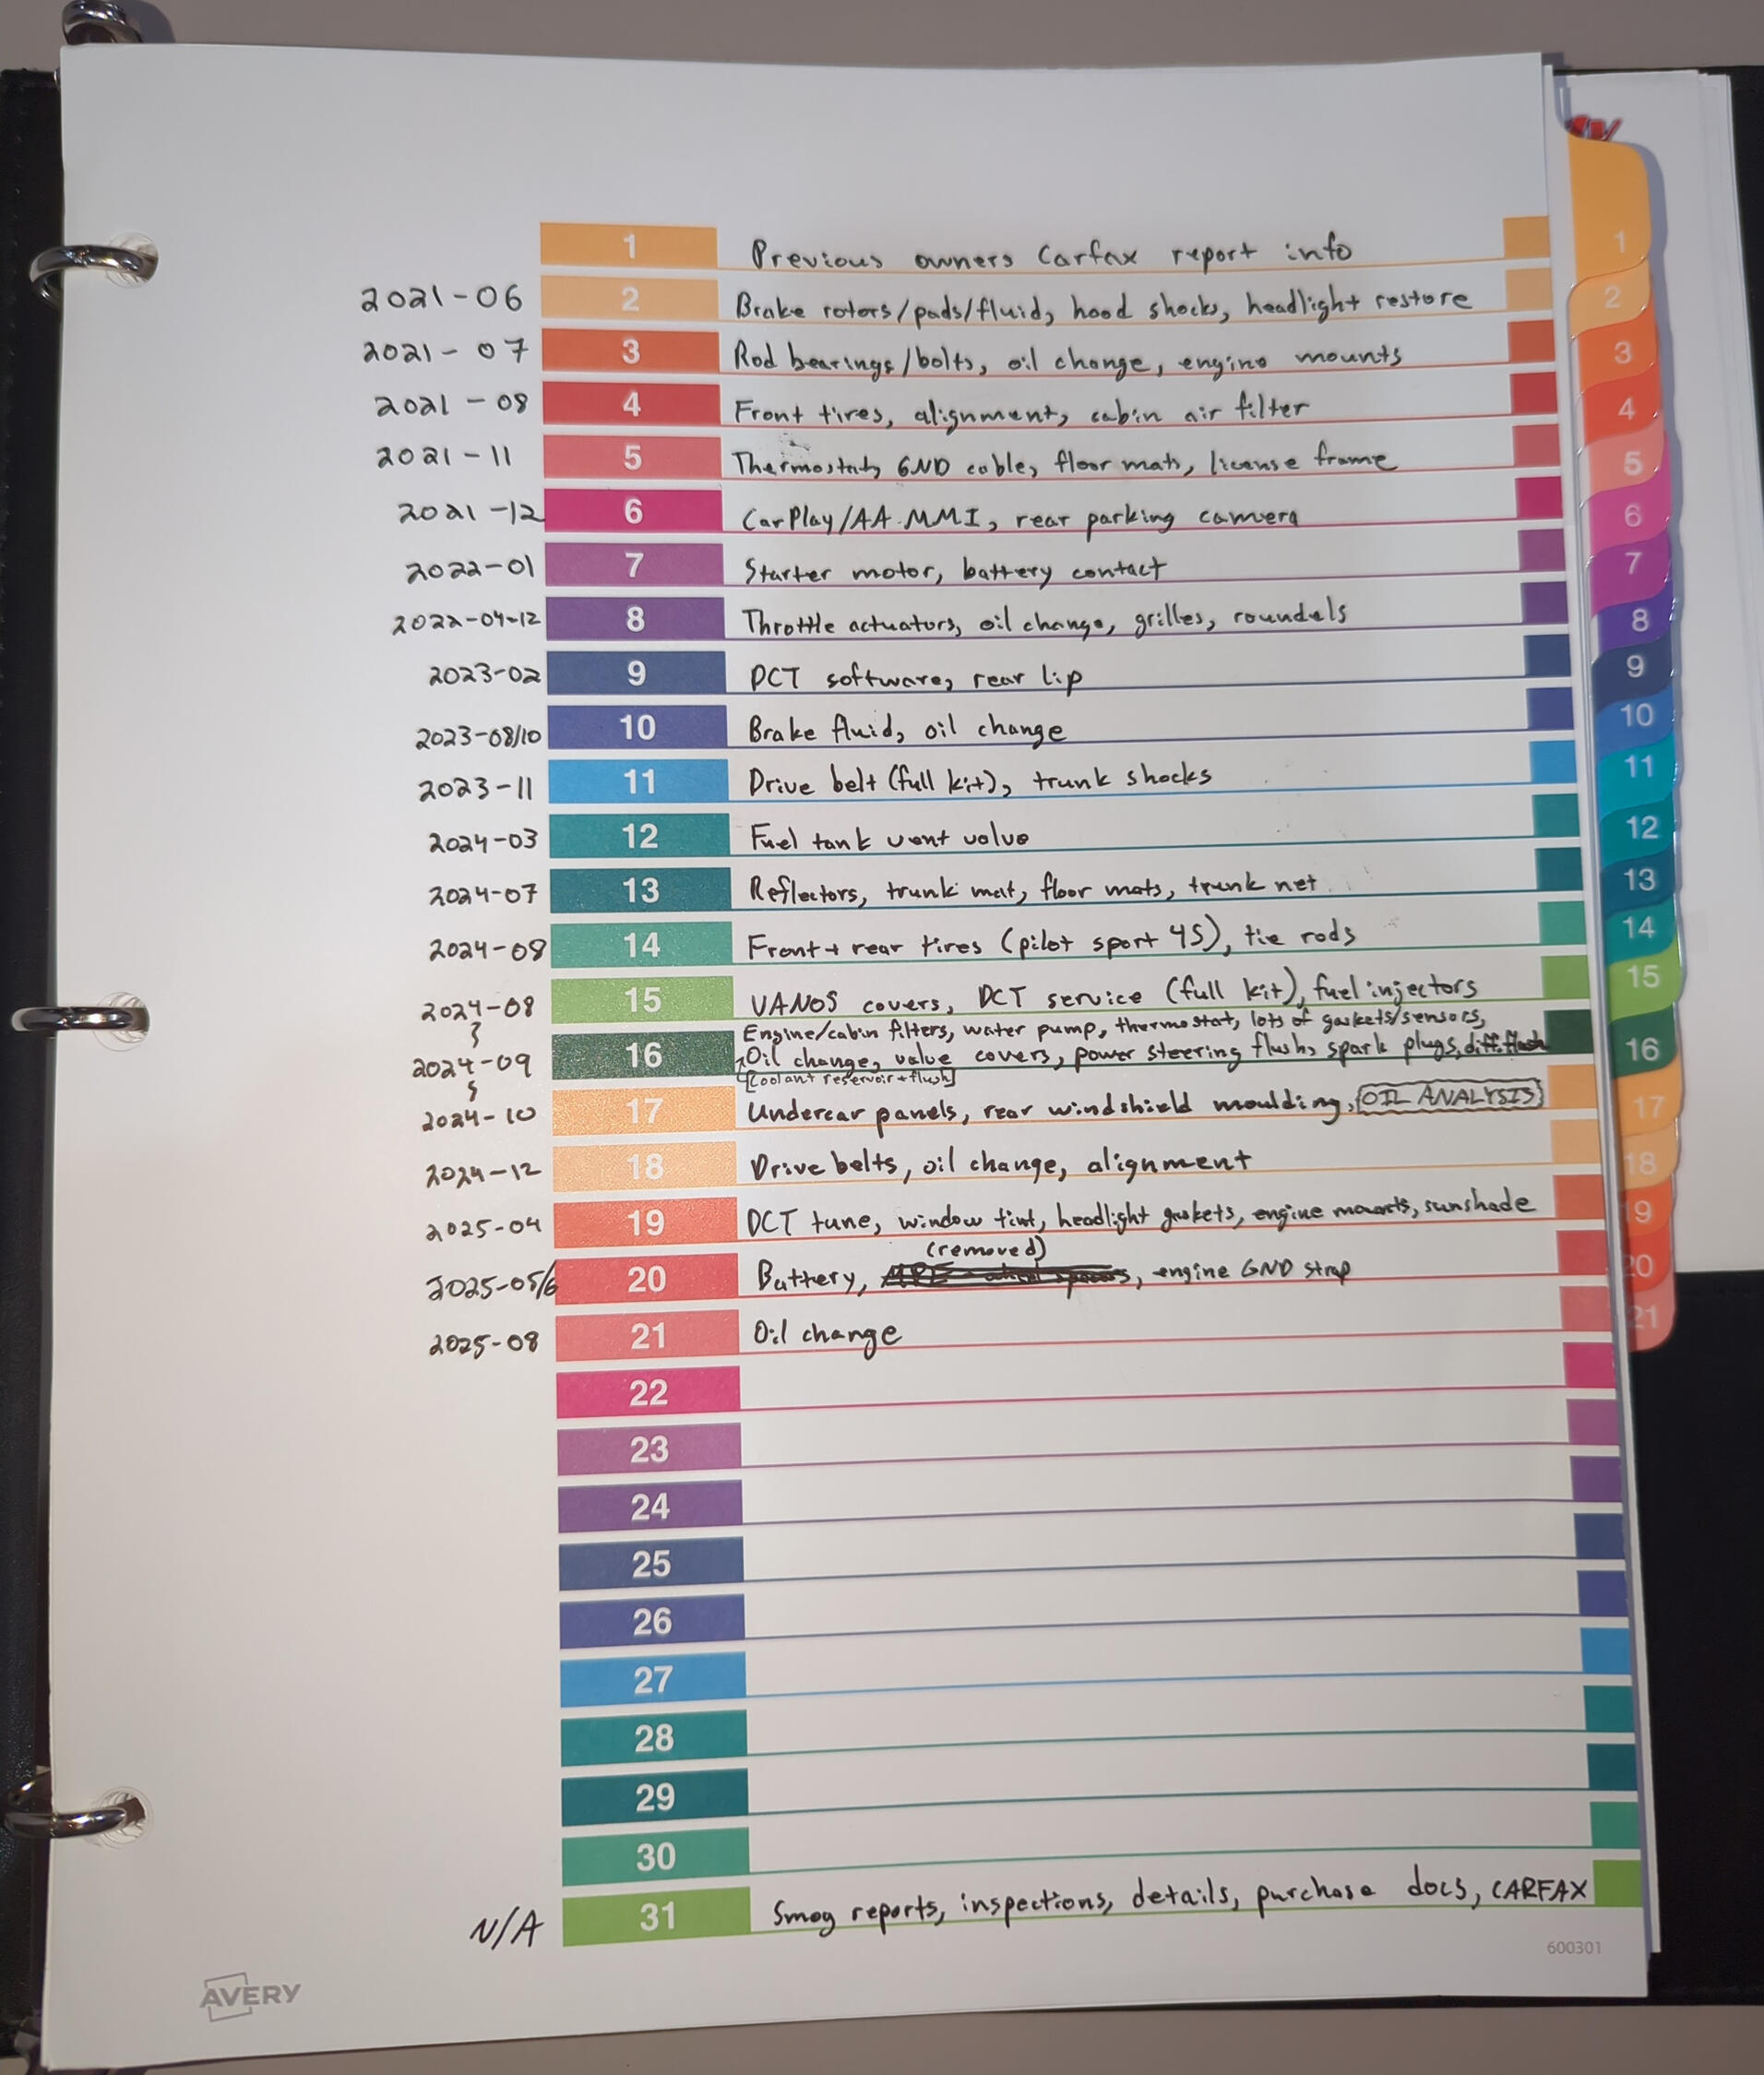 1 Previous owners Carfax report info
2021-06 2 Brake rotors/pads/fluid, hood shocks, headlight restore
2021-07 3 Rod bearings/bolts, oil change, engine mounts
2021-08 4 Front tires, alignment, cabin air filter
2021-11 5 Thermostat, GND cable, floor mats, license frame
2021-12 6 CarPlay/AA MMI, rear parking camera
2022-01 7 Starter motor, battery contact
2022-04-12 8 Throttle actuators, oil change, grilles, roundels
2023-02 9 DCT software, rear lip
2023-08/10 10 Brake fluid, oil change
2023-11 11 Drive belt (full kit), trunk shocks
2024-03 12 Fuel tank vent valve
2024-07 13 Reflectors, trunk mat, floor mats, trunk net
2024-08 14 Front + rear tires (pilot sport 4S), tie rods
2024-08 15 VANOS covers, DCT service (full kit), fuel injectors
Engine/cabin filters, water pump, thermostat, lots of gaskets/sensors,
2024-09 16 Oil change, valve covers, power steering flush, spark plugs, diff. flush
[Coolant reservoir + flush]
2024-10 17 Undercar panels, rear windshield moulding, OIL ANALYSIS
2024-12 18 Drive belts, oil change, alignment
2025-04 19 DCT tune, window tint, headlight gaskets, engine mounts, sunshade
(removed)
2025-05/6 20 Battery, , engine GND strap
2025-08 21 Oil change
22
23
24
25
26
27
28
29
30
N/A 31 Smog reports, inspections, details, purchase docs, CARFAX
600301
AVERY
1
2
3
4
5
6
7
8
9
10
11
12
13
14
15
16
17
18
19
20
21